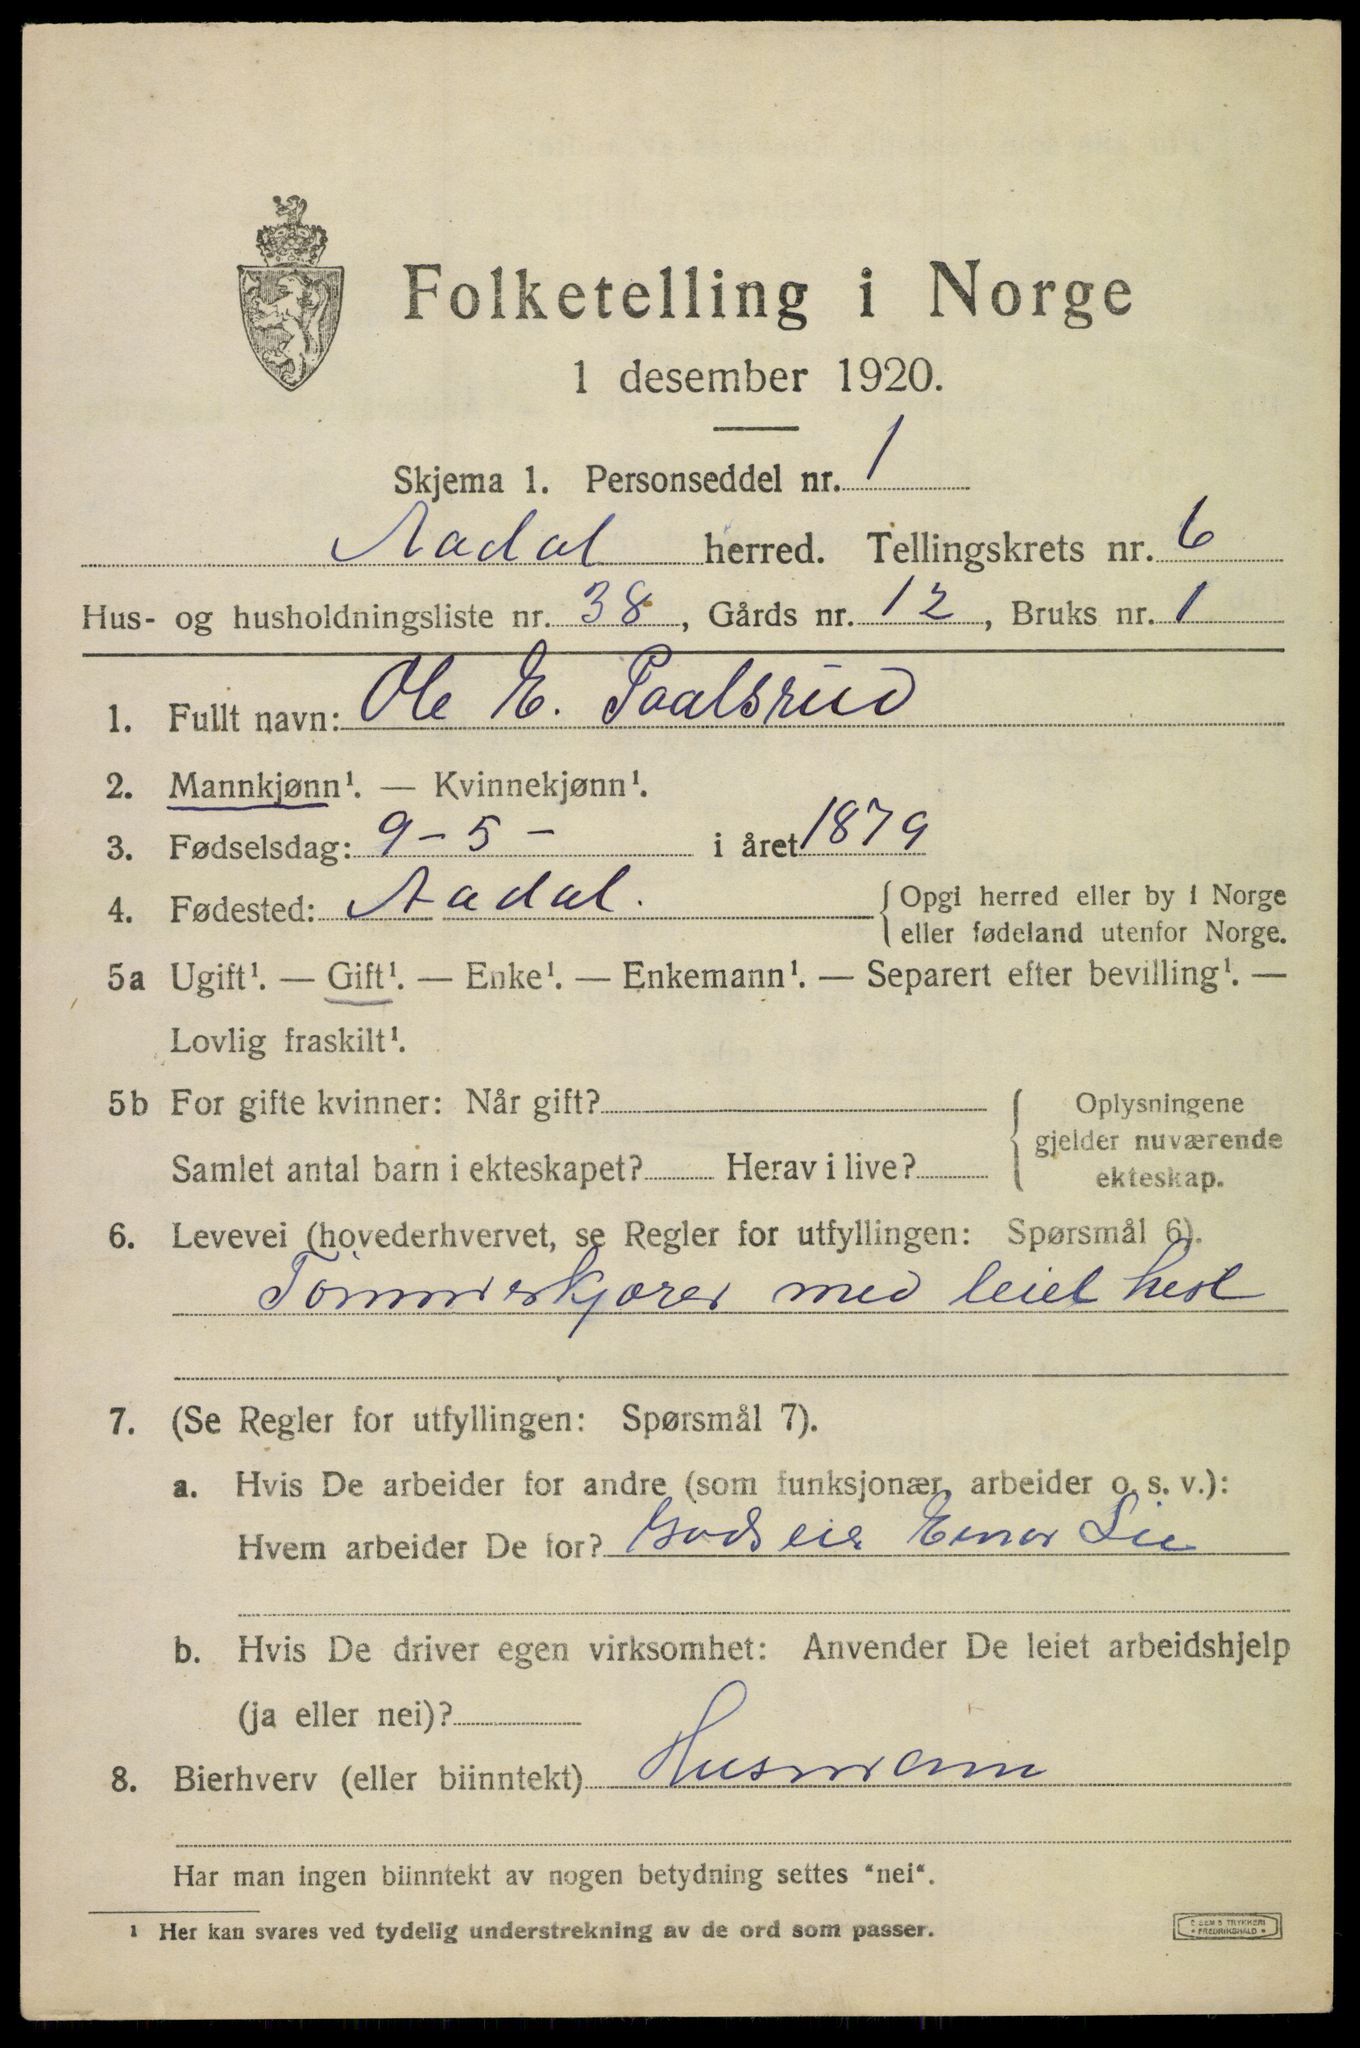 Folketelling i Norge
1 desember 1920.
Skjema 1. Personseddel nr. 1
Aadal herred. Tellingskrets nr. 6
Hus- og husholdningsliste nr. 38, Gårds nr. 12, Bruks nr. 1
1. Fullt navn: Ole E. Paalsrud
2. Mannkjønn¹. — Kvinnekjønn¹.
3. Fødselsdag: 9 – 5 – i året 1879
4. Fødested: Aadal. { Opgi herred eller by i Norge
eller fødeland utenfor Norge.
5a Ugift¹. — Gift¹. — Enke¹. — Enkemann¹. — Separert efter bevilling¹. —
Lovlig fraskilt¹.
5b For gifte kvinner: Når gift?
Samlet antal barn i ekteskapet? Herav i live?
{ Oplysningene
gjelder nuværende
ekteskap.
6. Levevei (hovederhvervet, se Regler for utfyllingen: Spørsmål 6).
Tømmerkjører med leiet hest
7. (Se Regler for utfyllingen: Spørsmål 7).
a. Hvis De arbeider for andre (som funksjonær, arbeider o. s. v.):
Hvem arbeider De for? Godseier Einar Lie
b. Hvis De driver egen virksomhet: Anvender De leiet arbeidshjelp
(ja eller nei)?
8. Bierhverv (eller biinntekt) Husmann
Har man ingen biinntekt av nogen betydning settes "nei".
¹ Her kan svares ved tydelig understrekning av de ord som passer.
TRYKKERI
FREDRIKSHALD